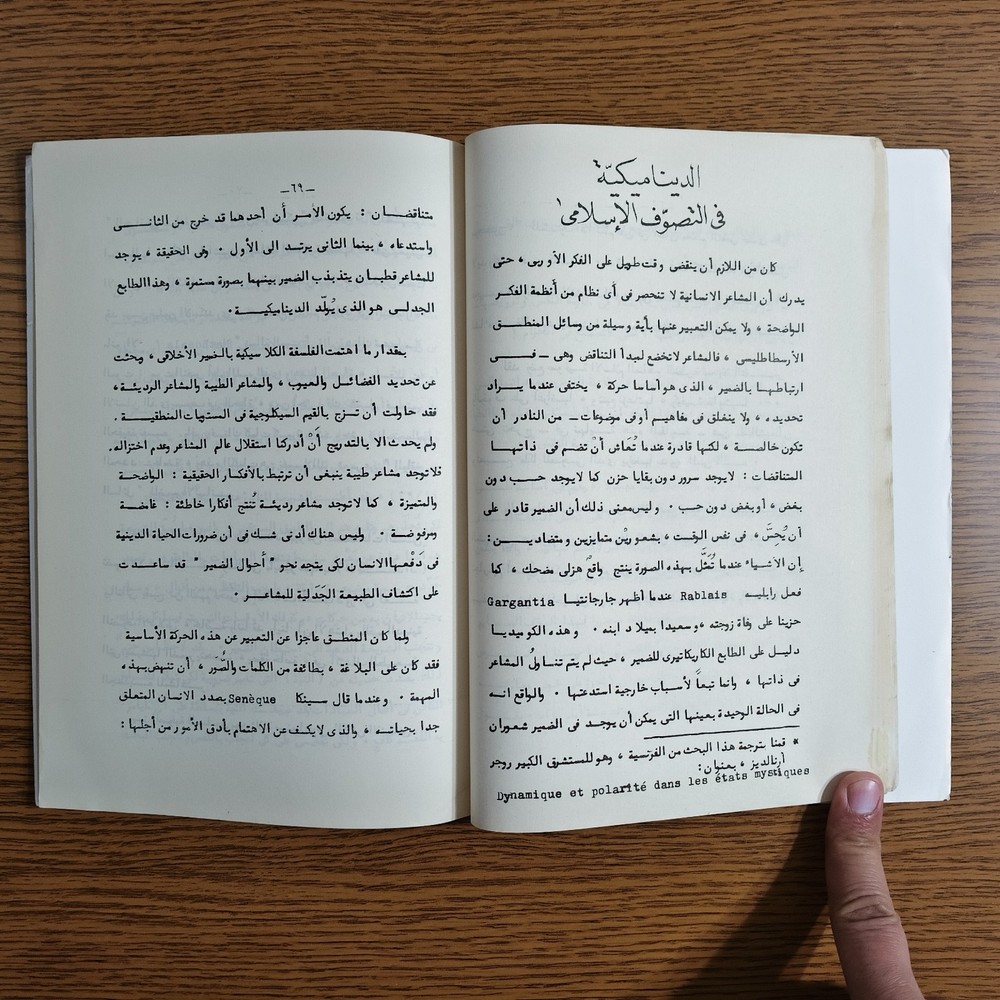 الديناميكيّة
فى التصوّف الإسلامى
كان من اللازم أن ينقضى وقت طويل على الفكر الأوربى ، حتى
يدرك أن المشاعر الانسانية لا تنحصر فى أى نظام من أنظمة الفكر
الواضحة ، ولا يمكن التعبير عنها بأية وسيلة من وسائل المنطــق
الأرسطاطليسى ، فالمشاعر لاتخضع لمبدأ التناقض وهى ــ فـــى
ارتباطـها بالضمير ، الذى هو أساسا حركة ، يختفى عندما يــراد
تحديده ، ولا ينغلق فى مفاهيم أو فى موضوعات ــ من النادر أن
تكون خالصــة ، لكنها قادرة عندما تُعَاش أنْ تضم فى ذاتـهـا
المتناقضات : لايوجد سرور دون بقايا حزن كما لايوجد حــب دون
بغض ، أو بغض دون حب . وليس معنى ذلك أن الضمير قادر على
أن يُحِسَّ ، فى نفس الوقــت ، بشعوريْن متمايزين ومتضاديــن :
إن الأشيـاء عندما تُمَثَّل بهذه الصورة ينتج واقعٌ هزلى مضحك ، كما
فعل رابليــه Rablais عندما أظهر جارجانتيـا Gargantia
حزينا على وفاة زوجته ، وسعيدا بميلاد ابنه . وهذه الكوميديـا
دليـل على الطابع الكاريكاتيرى للضمير ، حيث لم يتم تنـاولُ المشاعر
فى ذاتها ، وانما تبعاً لأسباب خارجية استدعتها . والواقع انــه
فى الحالة الوحيدة بعينها التى يمكن أن يوجـد فى الضمير شعوران
* قمنا بترجمة هذا البحث من الفرنسية ، وهو للمستشرق الكبير روجر
أرنالديز ، بعنوان :
Dynamique et polarité dans les états mystiques
ــ٦٩ــ
متناقضــان : يكون الأمــر أن أحدهما قد خرج من الثانــى
واستدعاه ، بينما الثانى يرتــد الى الأول . وفى الحقيقة ، يوجد
للمشاعر قطبـان يتذبذب الضمير بينهما بصورة مستمرة ، وهذا الطابع
الجدلــى هو الذى يُولّد الديناميكيــة .
بمقدار ما اهتمت الفلسفة الكلاسيكية بالضمير الأخلاقى ، وبحثت
عن تحديد الفضائــل والعيوب ، والمشاعر الطيبة والمشاعر الرديئــة ،
فقد حاولت أن تــزج بالقيم السيكلوجية فى المستويات المنطقيــة .
ولم يحدث الا بالتدريج أنْ أدركنا استقلال عالم المشاعر وعدم اختزاله .
فلاتوجد مشاعر طيبة ينبغى أن ترتبط بالأفكار الحقيقية : الواضحة
والمتميزة ، كما لاتوجد مشاعر رديئــة تُنتج أفكارا خاطئة : غامضة
ومرفوضة . وليس هناك أدنى شــك فى أن ضرورات الحياة الدينية
فى دَفْعـها الانسان لكى يتجه نحو " أحوال الضمير " قد ساعــدت
على اكتشاف الطبيعــة الجَدَلية للمشاعــر .
ولما كان المنطــق عاجزا عن التعبير عن هذه الحركة الأساسية
فقد كان على البلاغة ، بطائفة من الكلمات والصُّوَر ، أن تنهض بـهذه
المهمة . وعندما قال سـينكا Senèque بصدد الانسان المتعلق
جدا بحياتــه ، والذى لايكـف عن الاهتمام بأدق الأمور من أجلها :